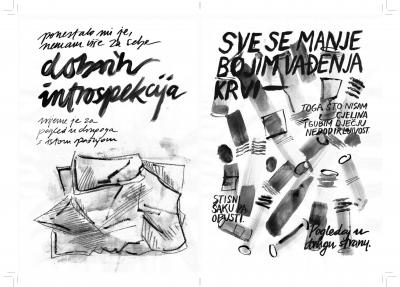 ponestalo mi je,
nemam više za sebe
dobrih
introspekcija
vrijeme je za
pogled u drugoga
s istom pažnjom
SVE SE MANJE
BOJIM VAĐENJA
KRVI—
TOGA ŠTO NISAM
CJELINA
I GUBIM DJEČJU
NEPODIJELJIVOST
STISNI
ŠAKU PA
OPUSTI.
Pogledaj u
drugu stranu.